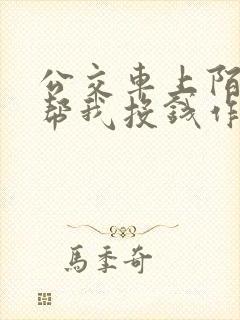 公交車上陌
帮我投錢作
馬季奇